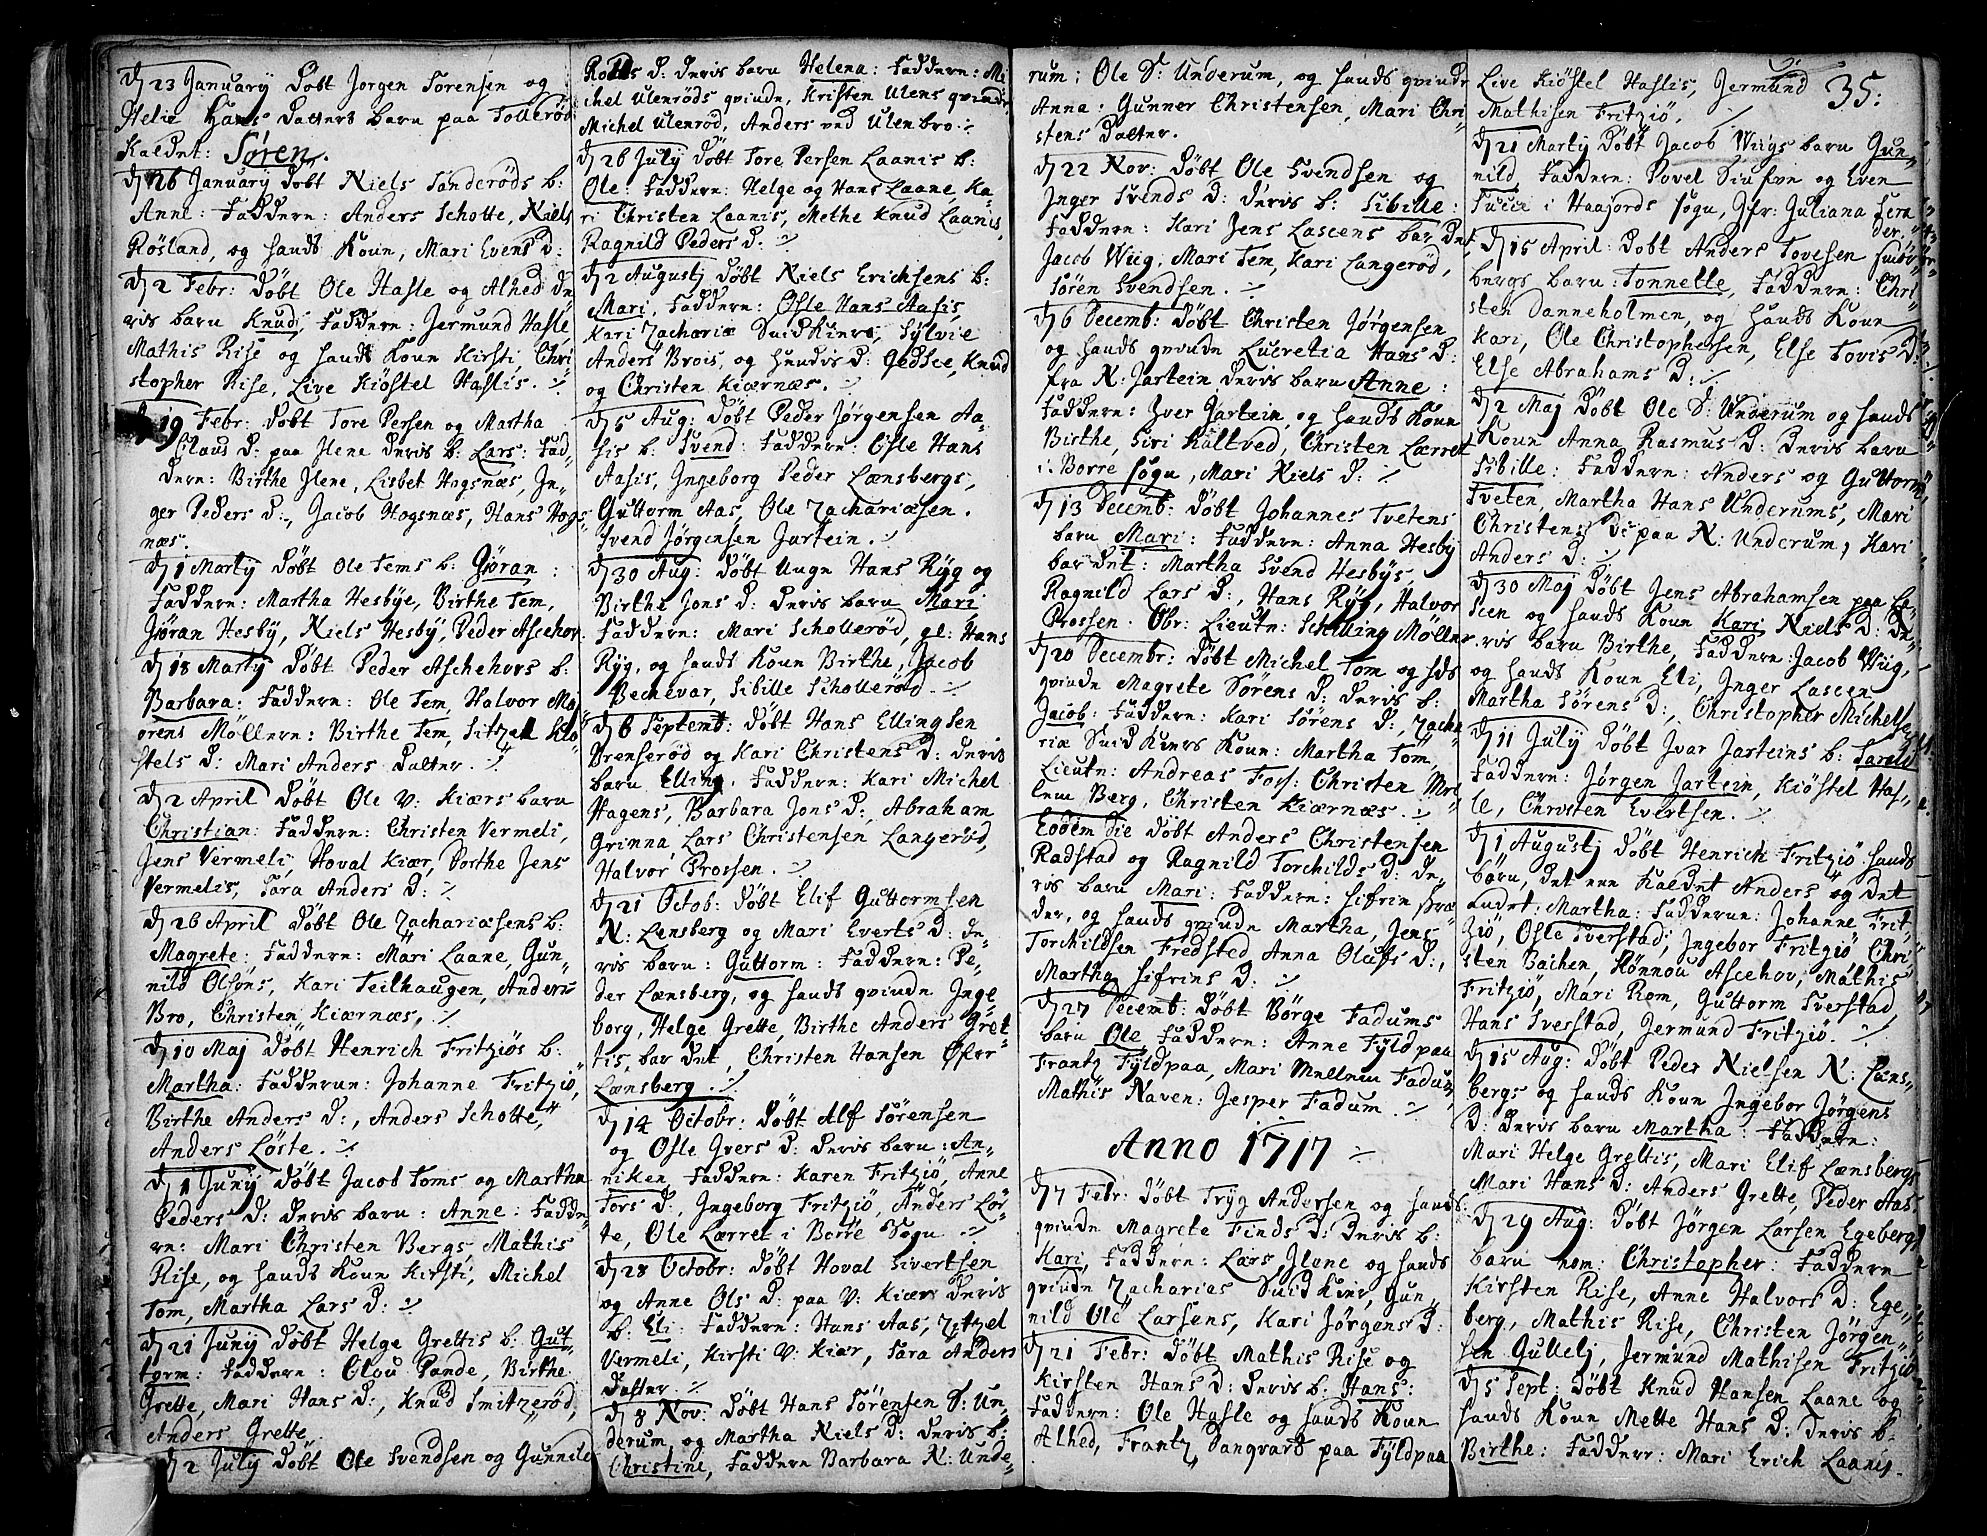 D 23 January Döbt Jorgen Sörensen og
Helie Hans Datters barn paa Tolleröd
Kaldet: Sören.
D 26 January Döbt Niels Sanderöds b:
Anne: Faddern: Anders Scholte, Niels
Rösland, og hands Koun, Mari Evens D:
D 2 Febr: Döbt Ole Hasle og Alhed de
ris barn Knud, Faddern: Jermund Hasle,
Mathis Rise og hands Koun Kirsti, Chri
stopher Rise, Live Kiöstel Haslis. ⁒
D 19 Febr: Döbt Tore Persen og Martha
Claus D: paa Ilene deris b: Lars: Fad„
dern: Birthe Ilene, Lisbet Hogsnæs, In„
ger Peders D:, Jacob Hogsnæs, Hans Hogs
næs.
D 1 Martij Döbt Ole Tems b: Göran:
Faddern: Martha Hesbye, Birthe Tem,
Jöran Hesbÿ, Niels Hesbÿ, Peder Ascehov.
D 18 Martij Döbt Peder Aschehovs b:
Barbara: Faddern: Ole Tem, Halvor Mi
örens Möllern: Birthe Tem, Sitzel Kiö
stels D: Mari Anders Datter. ⁒
D 2 April Döbt Ole V: Kiærs barn
Christian: Faddern: Christen Vermeli,
Jens Vermeli, Hoval Kiær, Dorthe Jens
Vermelis, Sara Anders D: ⁒
D 26 April Döbt Ole Zachariæsens b:
Magrete: Faddern: Mari Laane, Gun„
nild Olsöns, Kari Teilhaugen, Anders
Bro, Christen Kiærnæs, ⁒
D 10 Maj Döbt Henrich Fritziös b:
Martha: Faddern: Johanne Fritziö,
Birthe Anders D:, Anders Scholte,
Anders Löste. ⁒
D 1 Junÿ Döbt Jacob Toms og Martha
Peders D: deris barn: Anne: Fadde„
rn: Mari Christen Bergs, Mathis
Rise, og hands Koun Kirsti, Michel
Tom, Martha Lars D: ⁒
D 21 Junÿ Döbt Helge Grettis b: Gut„
torm: Faddern: Olou Pande, Birthe
Grette, Mari Hans D:, Knud Smitzeröd,
Anders Grette.
D 2 July Döbt Ole Svendsen og Gunnild
D: deris barn Helena: Faddern: Mi
chel Ulenröds qvinde, Kristen Ulens qvinde
Michel Ulenröd, Anders ved Ulenbro ⁒
D 26 July Döbt Tore Persen Laanis b:
Ole: Faddern: Helge og Hans Laane, Ka„
ri Christen Laanis, Methe Knud Laanis,
Ragnild Peders D. ⁒
D 2 Augustj Döbt Niels Erichsens b:
Mari, Faddern: Osle Hans Aasis,
Kari Zachæriæ Snidkers, Sylvie
Anders Brois, og hendis D: Gedsce, Knud
og Christen Kiærnæs. ⁒
D 5 Aug: Döbt Peder Jörgensen Aa„
sis b: Svend: Faddern: Osle Hans
Aasis, Ingeborg Peder Lænsbergs,
Guttorm Aas, Ole Zachariæsen.
Svend Jörgensen Jartein. ⁒
D 30 Aug: Döbt Unge Hans Rÿg og
Birthe Jons D: deris barn Mari
Faddern: Mari Scholleröd, gl: Hans
Rÿg, og hands Koun Birthe, Jacob
Bechevar, Sibille Scholleröd. ⁒
D 6 Septemb: Döbt Hans Ellingsen
Brenseröd og Kari Christens D: deris
barn Elling. Faddern: Kari Michel
Hagens, Barbara Jons D:, Abraham
Grinna, Lars Christensen Langeröd,
Halvor Prossen. ⁒
D 21 Octob: Döbt Elif Guttormsen
N: Lensberg og Mari Everts D: de„
ris barn: Guttorm: Faddern: Pe„
der Lænsberg, og hands qvinde Inge
borg, Helge Grette, Birthe Anders Gret
tis, bar det, Christen Hansen Ofver
Lænsberg. ⁒
D 14 Octobr: Döbt Alf Sörensen
og Osle Gvers D: deris barn: An„
niken Faddern: Karen Fritziö, Anne
Tors D:, Ingeborg Fritziö, Anders Lör„
te, Ole Lærret i Borre Sogn ⁒
D 28 Octobr: Döbt Hoval Sivertsen
og Anne Ols D: paa V: Kiær deris
b: Eli: Faddern: Hans Aas, Zitzel
Vermeli, Kirsti V: Kiær, Sara Anders
Datter. ⁒
D 8 Nov: Döbt Hans Sörensen S: Un
derum, og Martha Niels D: deris b:
Christine, Faddern Barbara N: Unde„
rum; Ole S: Underum, og hands qvinde
Anna: Gunner Christensen, Mari Chri„
stens Datter.
D 22 Nov: Döbt Ole Svendsen og
Inger Svends D: deris b: Sibille:
Faddern: Kari Jens Lascens bar det,
Jacob Wiig, Mari Tem, Kari Langeröd,
Sören Svendsen. ⁒
D 6 Decemb: Döbt Christen Jörgensen
og hands qvinde Lucretia Hans D:
fra N: Jartein, deris barn Anne:
Faddern: Iver Jartein, og hands Koun
Birthe, Siri Kaltved, Christen Lærret
i Borre sogn, Mari Niels D: ⁒
D 13 Decemb: Döbt Johannes Tvetens
barn Mari: Faddern: Anna Hesbÿ
bar det: Martha Svend Hesbÿs,
Ragnild Lars D:, Hans Rÿg, Halvor
Prossen. Obr: Lieutn: Schlling Möllner
D 20 Decembr: Döbt Michel Tom og hds
qvinde Magrete Sörens D: deris b:
Jacob: Faddern: Kari Sörens D:, Zacha„
riæ Snidkers Koun: Martha Tom,
Lieutn: Andreas Fors: Christen Mel
lem Berg, Christen Kiærnæs. ⁒
Eodem Die Döbt Anders Christensen
Radstad og Ragnild Torchilds D: de„
ris barn Mari: Faddern: Sifrin skræ
der, og hands qvinde Martha, Jens
Torchildsen Fredsted Anna Olufs D:,
Martha Sifrins D: ⁒
D 27 Decemb: Döbt Börge Fadums
barn Ole Faddern: Anne Fÿldpaa
Frantz Fÿldpaa, Mari Mellem Fadum,
Mathis Naven: Jesper Fadum. ⁒
Anno 1717 ⁒
D 7 Febr: Döbt Trÿg Andersen og hands
qvinde Magrete Finds D: deris b:
Kari, Faddern: Lars Ilene og hands
qvinde Zacharias Snidker, Gun„
nild Ole Larsens, Kari Jörgens D:
D 21 Febr: Döbt Mathis Rise og
Kirsten Hans D: deris b: Hans:
Faddern: Ole Hasle og hands Koun
Alhed, Frantz Danqvard paa Fÿldpaa
35:
Live Kiöstel Haslis, Jermund
Mathisen Fritziö.
D 21 Martij Döbt Jacob Wiigs barn Gun„
nild, Faddern: Povel Siufve og Even
Fucce i Haajords sogn, Jfr: Juliana Scra
der,
D 15 April: Döbt Anders Tovesen
bergs barn: Tonnette, Faddern: Chri
sten Danneholmen, og hands Koun
Kari, Ole Christophersen, Else Tovis D:
Else Abrahams D: ⁒
D 2 Maj Döbt Ole S: Underum og hands
Koun Anna Rasmus D: deris barn
Sibille: Faddern: Anders og Guttorm
Tveten, Martha Hans Underums, Mari
Christens D: paa N: Underum, Kari
Anders D: ⁒
D 30 Maj Döbt Jens Abrahamsen paa
og hands Koun Kari Niels D: de„
ris barn Birthe, Faddern: Jacob Wiig,
og hands Koun Eli, Inger Lascen
Martha Sörens D:, Christopher Michelsen
D 11 July Döbt Ivar Jarteins b:
Faddern: Jörgen Jartein, Kiöstel Has„
le, Christen Evertsen. ⁒
D 1 Augustj Döbt Henrich Fritziö hands
börn, det ene Kaldet Anders og det
andet: Martha: Faddern: Johanne Frit„
ziö, Osle Sverstad, Ingebor Fritziö Chri„
sten Bachen, Rönnou Ascehov, Mathis
Fritziö, Mari Rom, Guttorm Sverstad,
Hans Sverstad, Jermund Fritziö. ⁒
D 15 Aug: Döbt Peder Nielsen N: Læns„
bergs og hands Koun Ingebor Jörgens
D: deris barn Martha: Faddern:
Mari Helge Grettis, Mari Elif Lænsbergs
Mari Hans D: Anders Grette, Peder Aas
D 29 Aug: Döbt Jörgen Larsen Egebergs
barn nom: Christopher: Faddern
Kirsten Rise, Anne Halvors D: Ege„
berg, Mathis Rise, Christen Jörgen„
sen Gullelj, Jermund Mathisen Fritziö
D 5 Sept: Döbt Knud Hansen Laane og
hands Koun Mette Hans D: deris b:
Birthe: Faddern: Mari Erich Laanis.